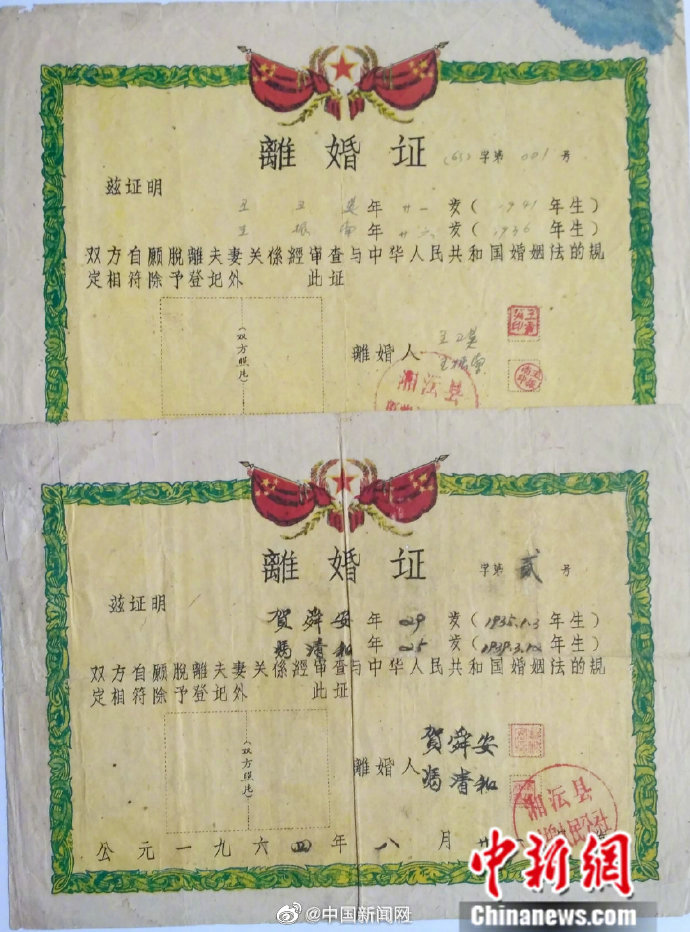 離婚证
(65)字第001号
兹证明
王 年廿一岁(1941年生)
王振南年廿六岁(1936年生)
双方自愿脱離夫妻关係經审查与中华人民共和国婚姻法的规
定相符除予登记外 此证
(双方照片)
離婚人
王振南
湘沄县
離婚证
字第貳号
兹证明
賀舜安年29岁(1935.1.3年生)
馮清和年25岁(1939.3.12年生)
双方自愿脱離夫妻关係經审查与中华人民共和国婚姻法的规
定相符除予登记外 此证
(双方照片)
離婚人
賀舜安
馮清和
湘沄县
人民公社
公元一九六四年八月廿
中新網
Chinanews.com
@中国新闻网